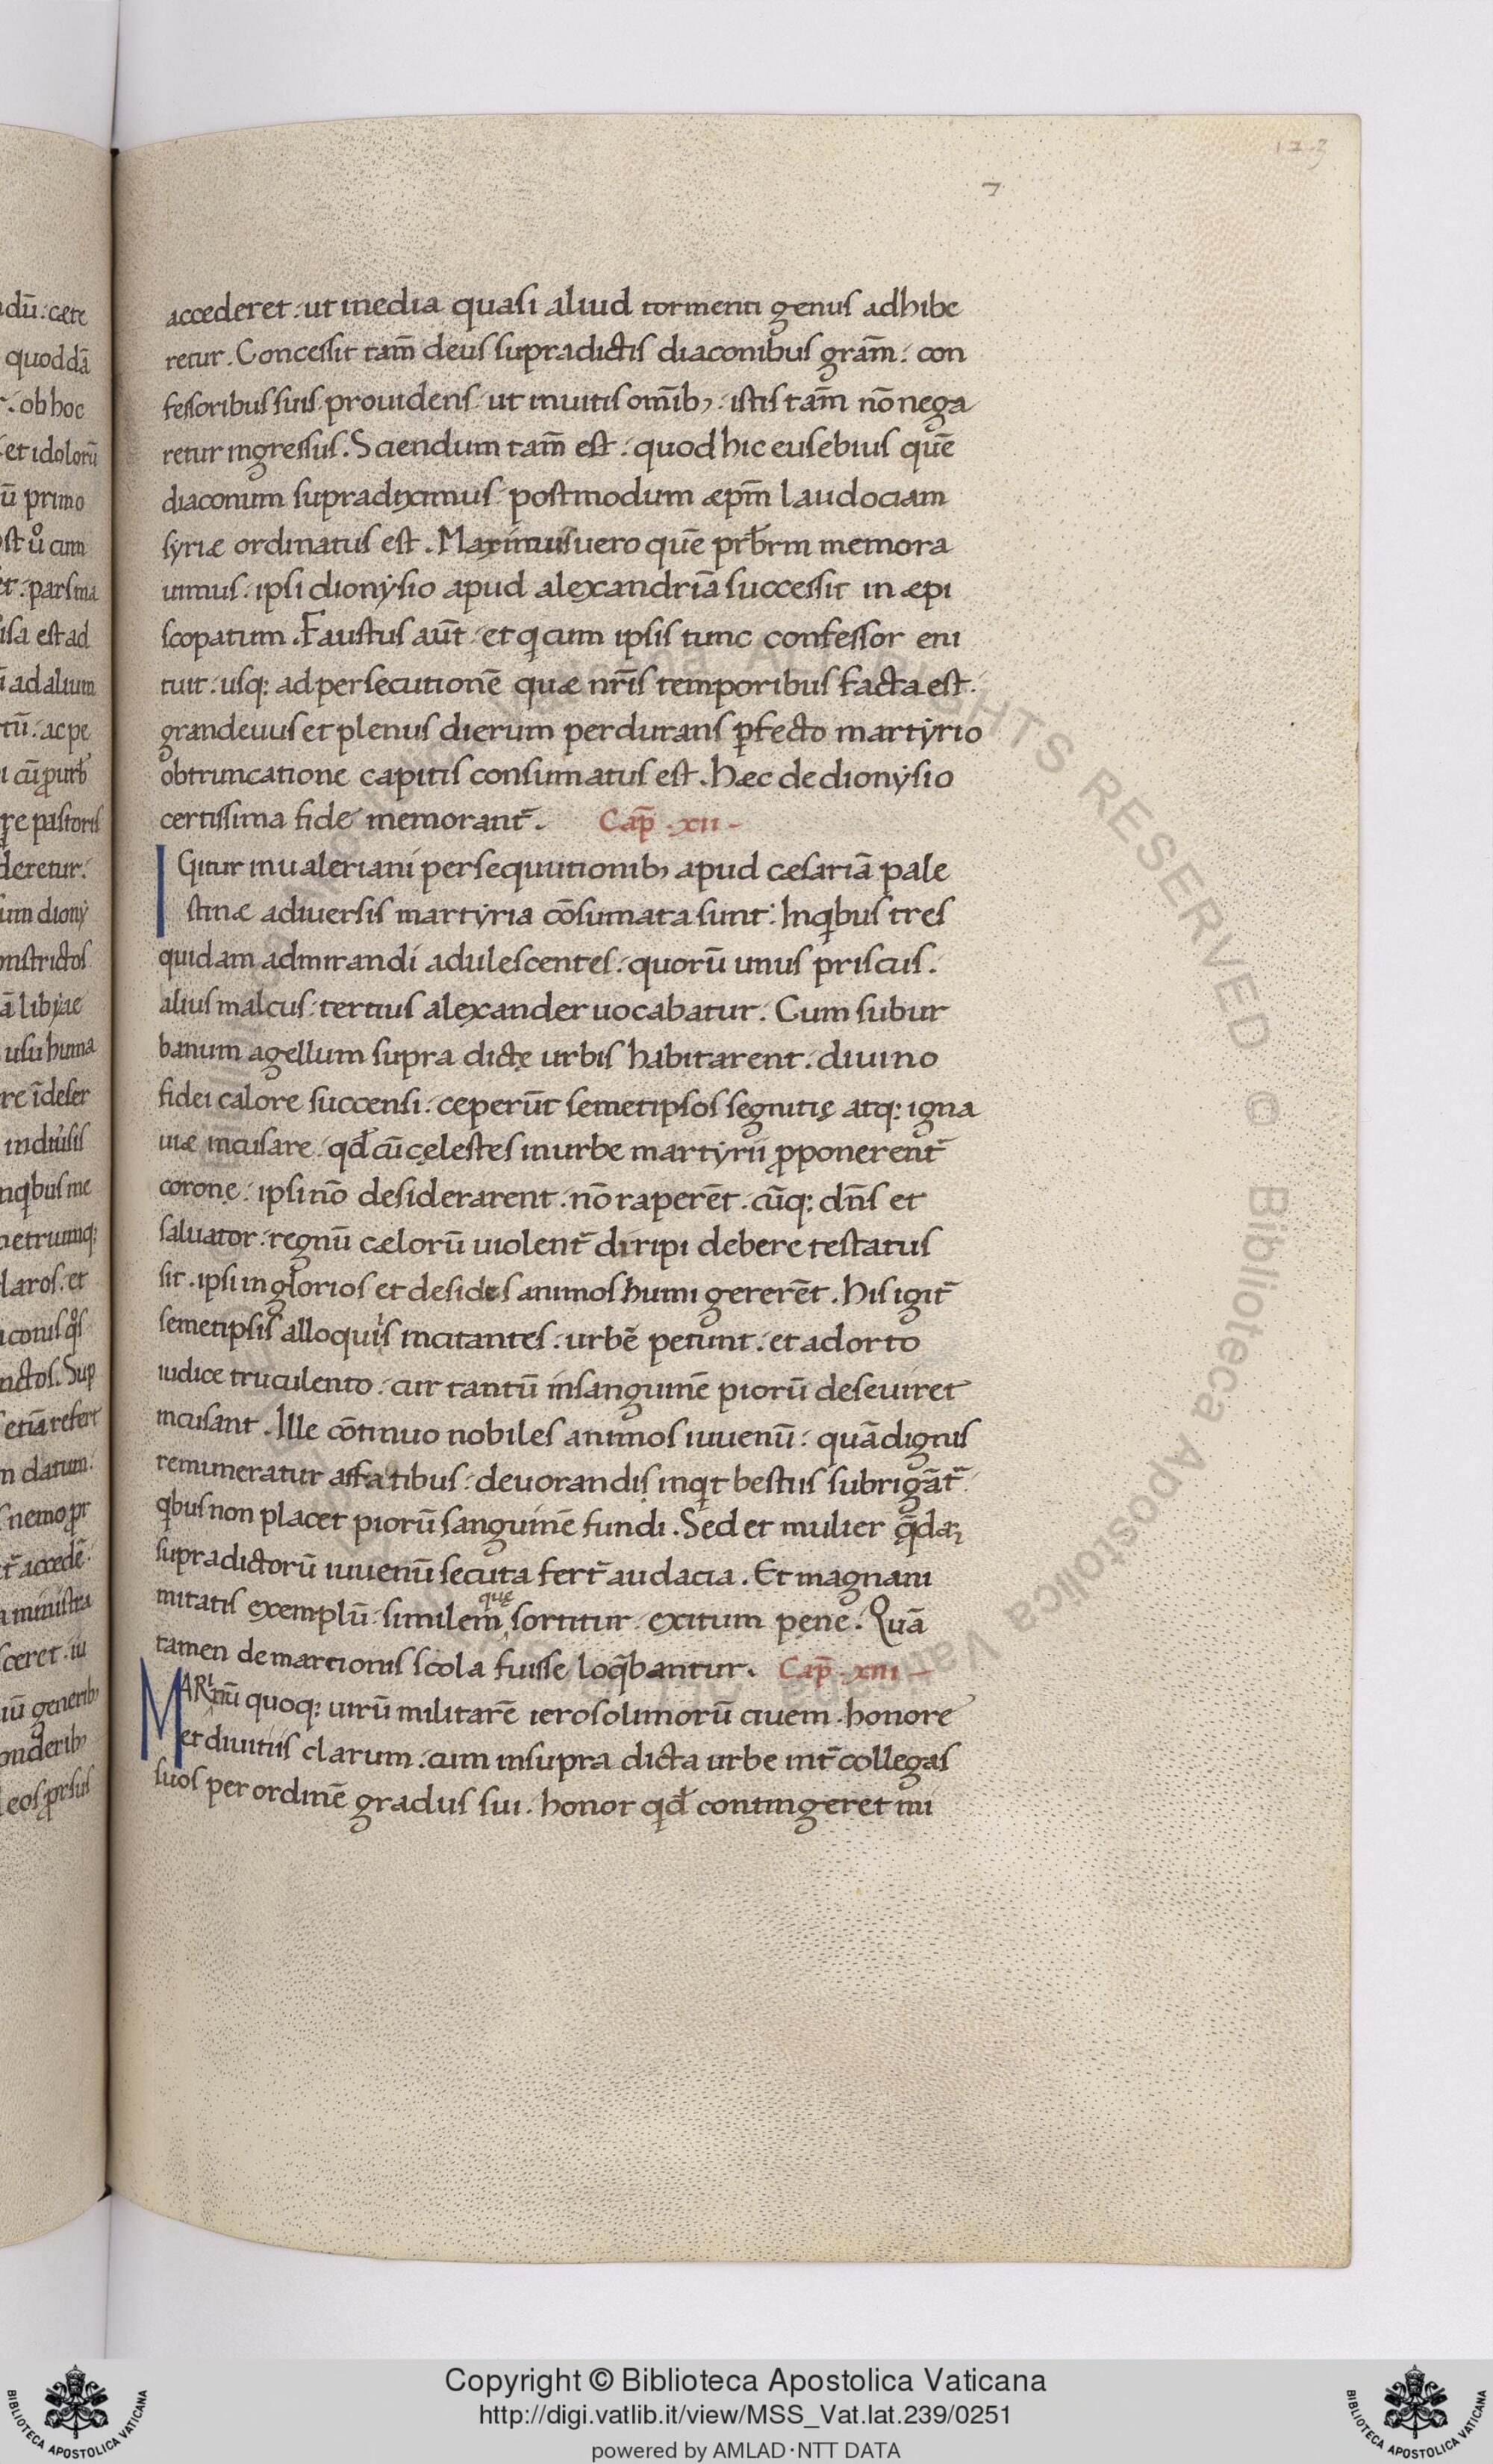 123
7
accederet · ut inedia quasi aliud tormenti genus adhibe
retur. Concessit tam̄ deus supradictis diaconibus gram̄ · con
fessoribus suis prouidens · ut inuitis om̄ib; · istis tam̄ nō nega
retur ingressus. Sciendum tam̄ est · quod hic eusebius quē
diaconum supradiximus postmodum æpm̄ laudociam
syriæ ordinatus est. Maximus uero quē prb̄rm memora
uimus · ipsi dionysio apud alexandriā successit in æpi
scopatum. Faustus aūt · et q cum ipsis tunc confessor eni
tuit · usq: ad persecutionē quæ nr̄is temporibus facta est ·
grandeuus et plenus dierum perdurans ꝑfecto martyrio
obtruncatione capitis consumatus est. Hæc de dionysio
certissima fide memorant̄. Cap̄ · xii –
IGitur in ualeriani persequutionib; apud cæsariā pale
stinæ adiuersis martyria cōsumata sunt · In qibus tres
quidam admirandi adulescentes · quorū unus priscus ·
alius malcus · tertius alexander uocabatur. Cum subur
banum agellum supra dictę urbis habitarent · diuino
fidei calore succensi · ceperūt semetipsos segnitię atq: igna
uiæ incusare · qđ cū cęlestes in urbe martyrii ꝓponerent̄
coronę · ipsi nō desiderarent · nō raperēt · cūq: dn̄s et
saluator · regnū cælorū uiolent̄ diripi debere testatus
sit · ipsi inglorios et desides animos humi gererēt. His igit̄
semetipsos alloquiis incitantes · urbē petunt · et adorto
iudice truculento · cur tantū in sanguinē piorū deseuiret
incusant. Ille cōtinuo nobiles animos iuuenū · quā dignis
remuneratur affatibus · deuorandis inqit bestiis subrigāt̄
qibus non placet piorū sanguinē fundi. Sed et mulier q̄dā
supradictorū iuuenū secuta fert̄ audacia. Et magnani
mitatis exemplū · similem quę sortitur exitum pene. Quā
tamen de martionis scola fuisse loq̄bantur. Cap̄ · xiii –
MARinū quoq: uirū militarē ierosolimorū ciuem · honore
et diuitiis clarum · cum in supra dicta urbe int̄ collegas
suos per ordinē gradus sui · honor qđ contingeret mi
Copyright © Biblioteca Apostolica Vaticana
http://digi.vatlib.it/view/MSS_Vat.lat.239/0251
powered by AMLAD·NTT DATA
BIBLIOTECA APOSTOLICA VATICANA
BIBLIOTECA APOSTOLICA VATICANA